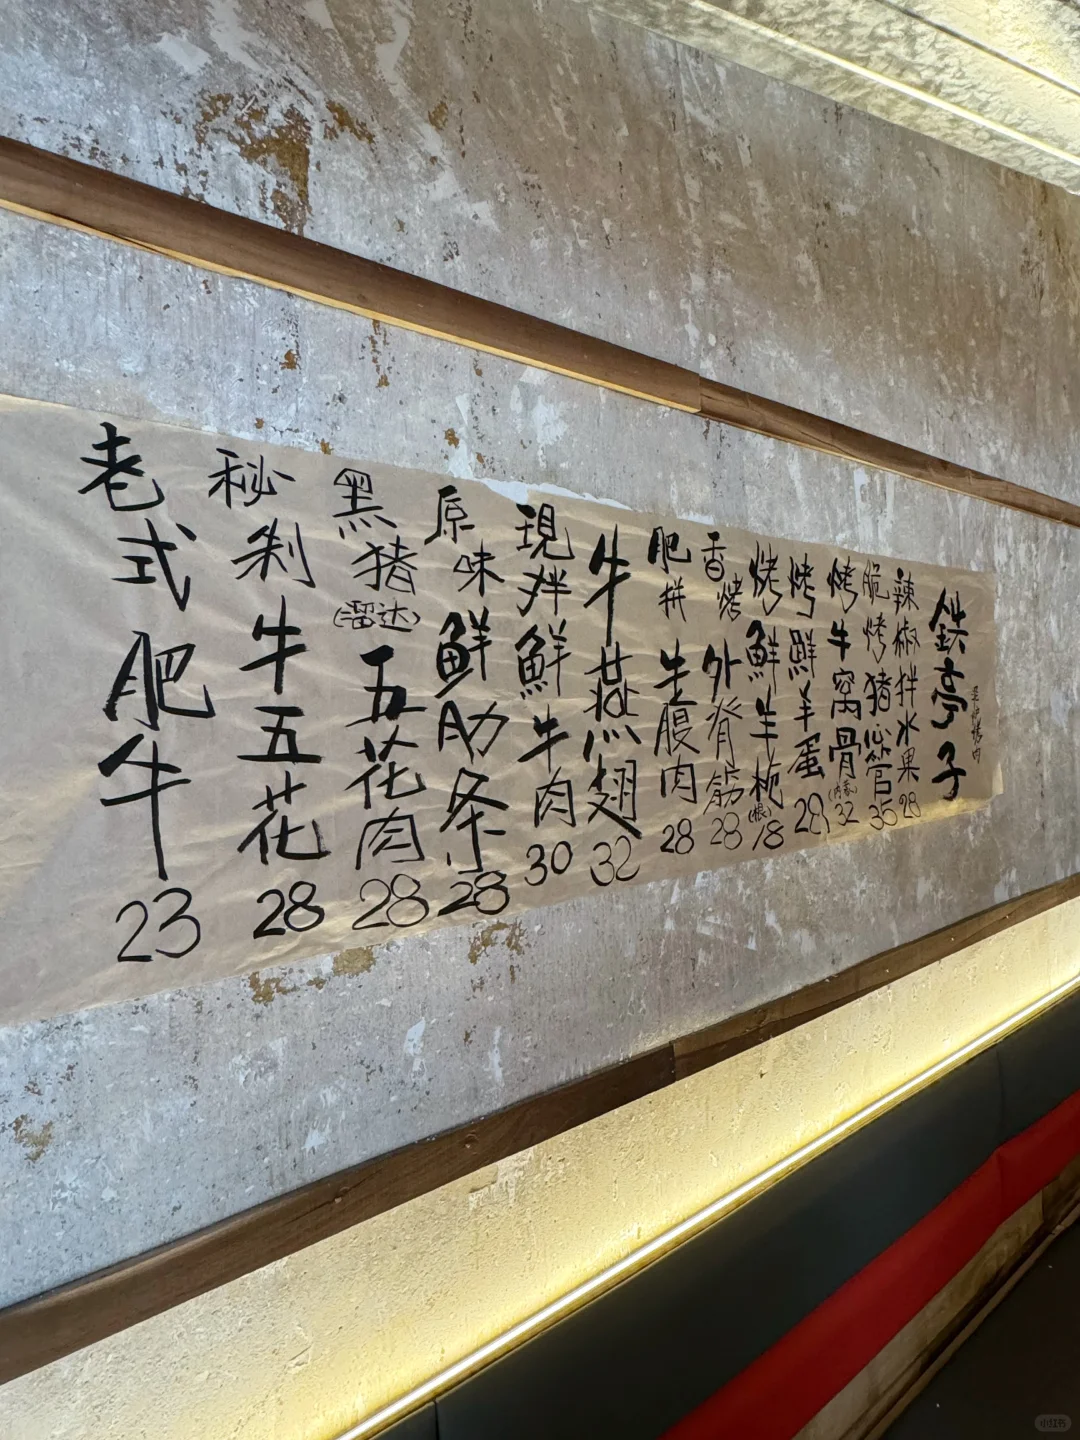 鉄亭子
辣椒拌水果 28
脆烤猪心管 35
烤牛窝骨 32
烤鮮羊蛋 28
烤鮮羊枹(根) 18
香烤外脊筋 28
肥拼牛腹肉 28
牛燕翅 32
現拌鮮牛肉 30
原味鮮肋条 28
黑猪(溜达)五花肉 28
秘制牛五花 28
老式肥牛 23
小红书